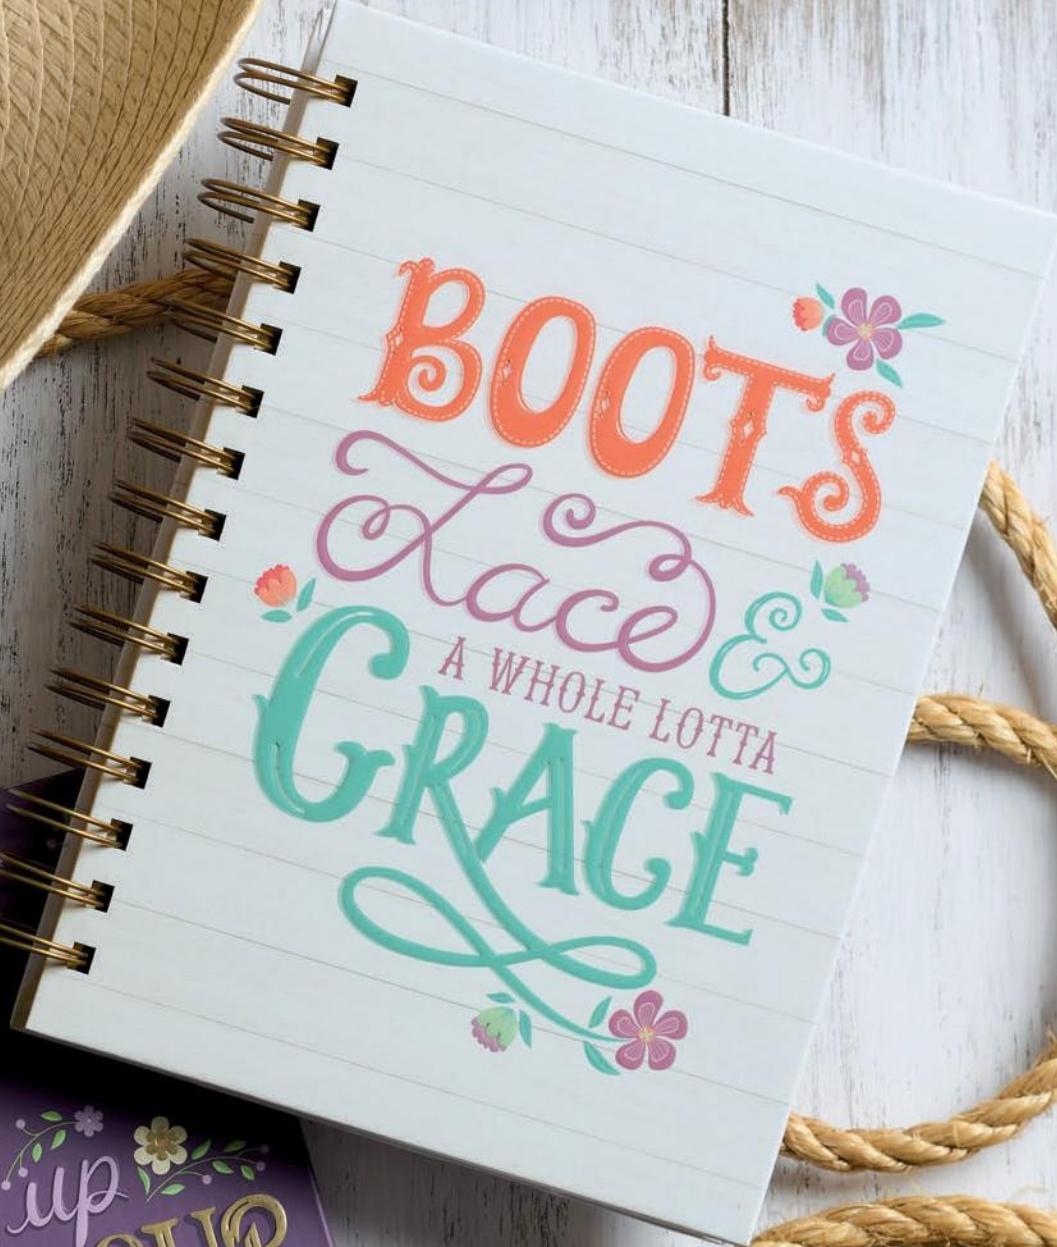 BOOTS
Lace &
A WHOLE LOTTA
GRACE
up